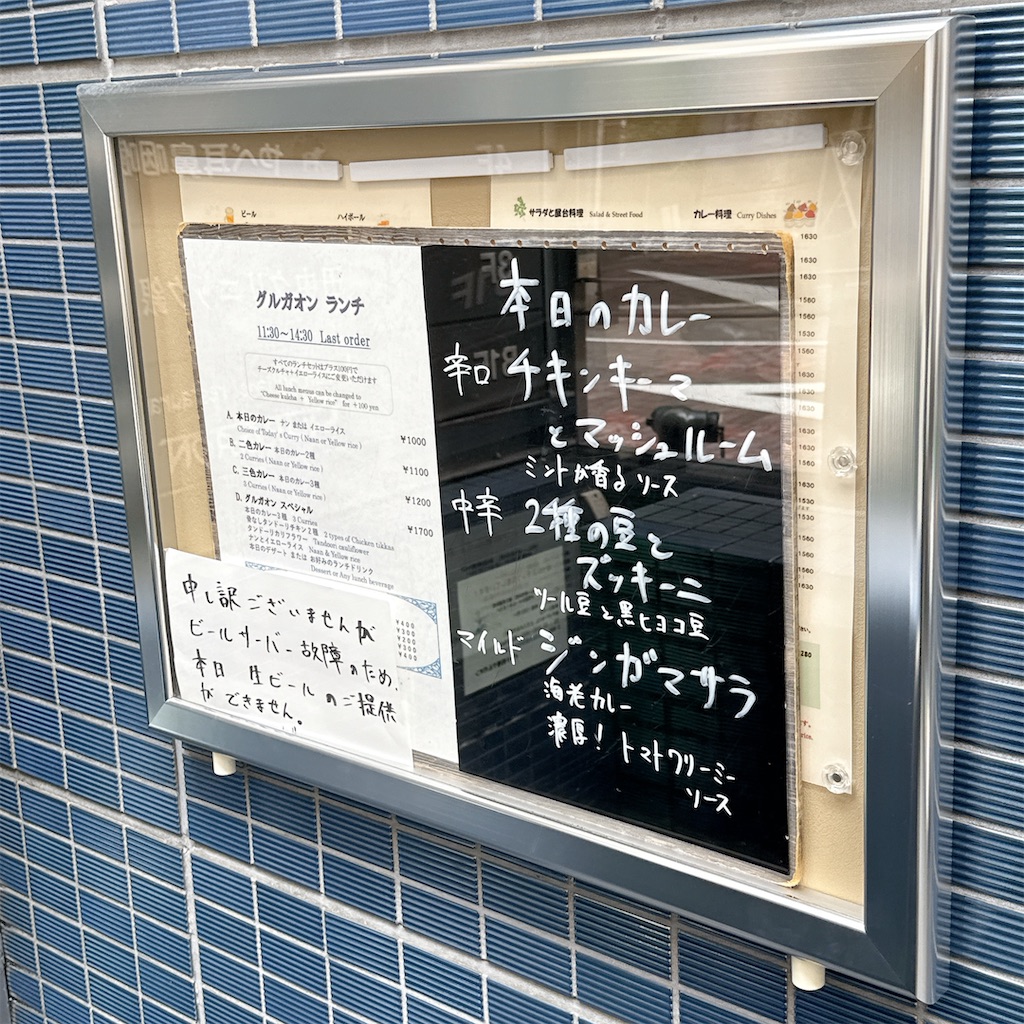 ビール
ハイボール
サラダと屋台料理 Salad & Street Food
カレー料理 Curry Dishes
グルガオン ランチ
11:30～14:30 Last order
すべてのランチセットはプラス100円で
チーズクルチャ+イエローライスにご変更いただけます
All lunch menus can be changed to
"Cheese kulcha + Yellow rice" for +100 yen
A. 本日のカレー ナン または イエローライス
Choice of Today's Curry ( Naan or Yellow rice )
¥1000
B. 二色カレー 本日のカレー2種
2 Curries ( Naan or Yellow rice )
¥1100
C. 三色カレー 本日のカレー3種
3 Curries ( Naan or Yellow rice )
¥1200
D. グルガオン スペシャル
¥1700
本日のカレー3種 3 Curries
骨なしタンドーリチキン2種 2 types of Chicken tikkas
タンドーリカリフラワー Tandoori cauliflower
ナンとイエローライス Naan & Yellow rice
本日のデザート または お好みのランチドリンク
Dessert or Any lunch beverage
¥400
¥300
¥200
¥300
¥400
申し訳ございませんが
ビールサーバー故障のため、
本日 生ビールのご提供
ができません。
本日のカレー
辛口 チキンキーマ
とマッシュルーム
ミントが香るソース
中辛 2種の豆と
ズッキーニ
ツール豆と黒ヒヨコ豆
マイルド ジンガマサラ
海老カレー
濃厚！トマトクリーミー
ソース
1630
1630
1630
1560
1560
1530